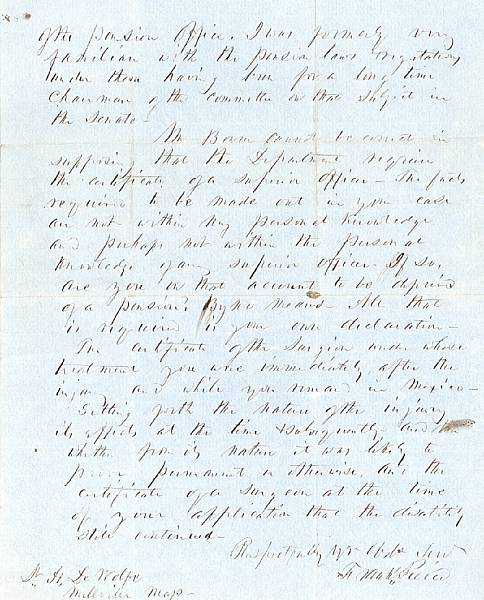 of the Pension Office. I was formerly very
familiar with the pension laws & regulations
under them having been for a long time
Chairman of the committee on that subject in
the Senate -
Mr cannot be correct in
supposing that the Department require
the certificate of a superior officer - The facts
required to be made out in your case
are not within my personal knowledge
and perhaps not within the personal
knowledge of any superior officer. If so,
are you on that account to be deprived
of a pension? By no means - All that
is required is your own declaration -
The certificate of the Surgeon under whose
treatment you were immediately after the
injury and while you remained in Mexico -
Setting forth the nature of the injury
its effects at the time & subsequently and
whether from its nature it was likely to
prove permanent or otherwise, and the
certificate of a surgeon at the time
of your application that the disability
still continued -
Respectfully Yr Obdt Servt
Frank. Pierce
De Wolfe
Melville Mass -